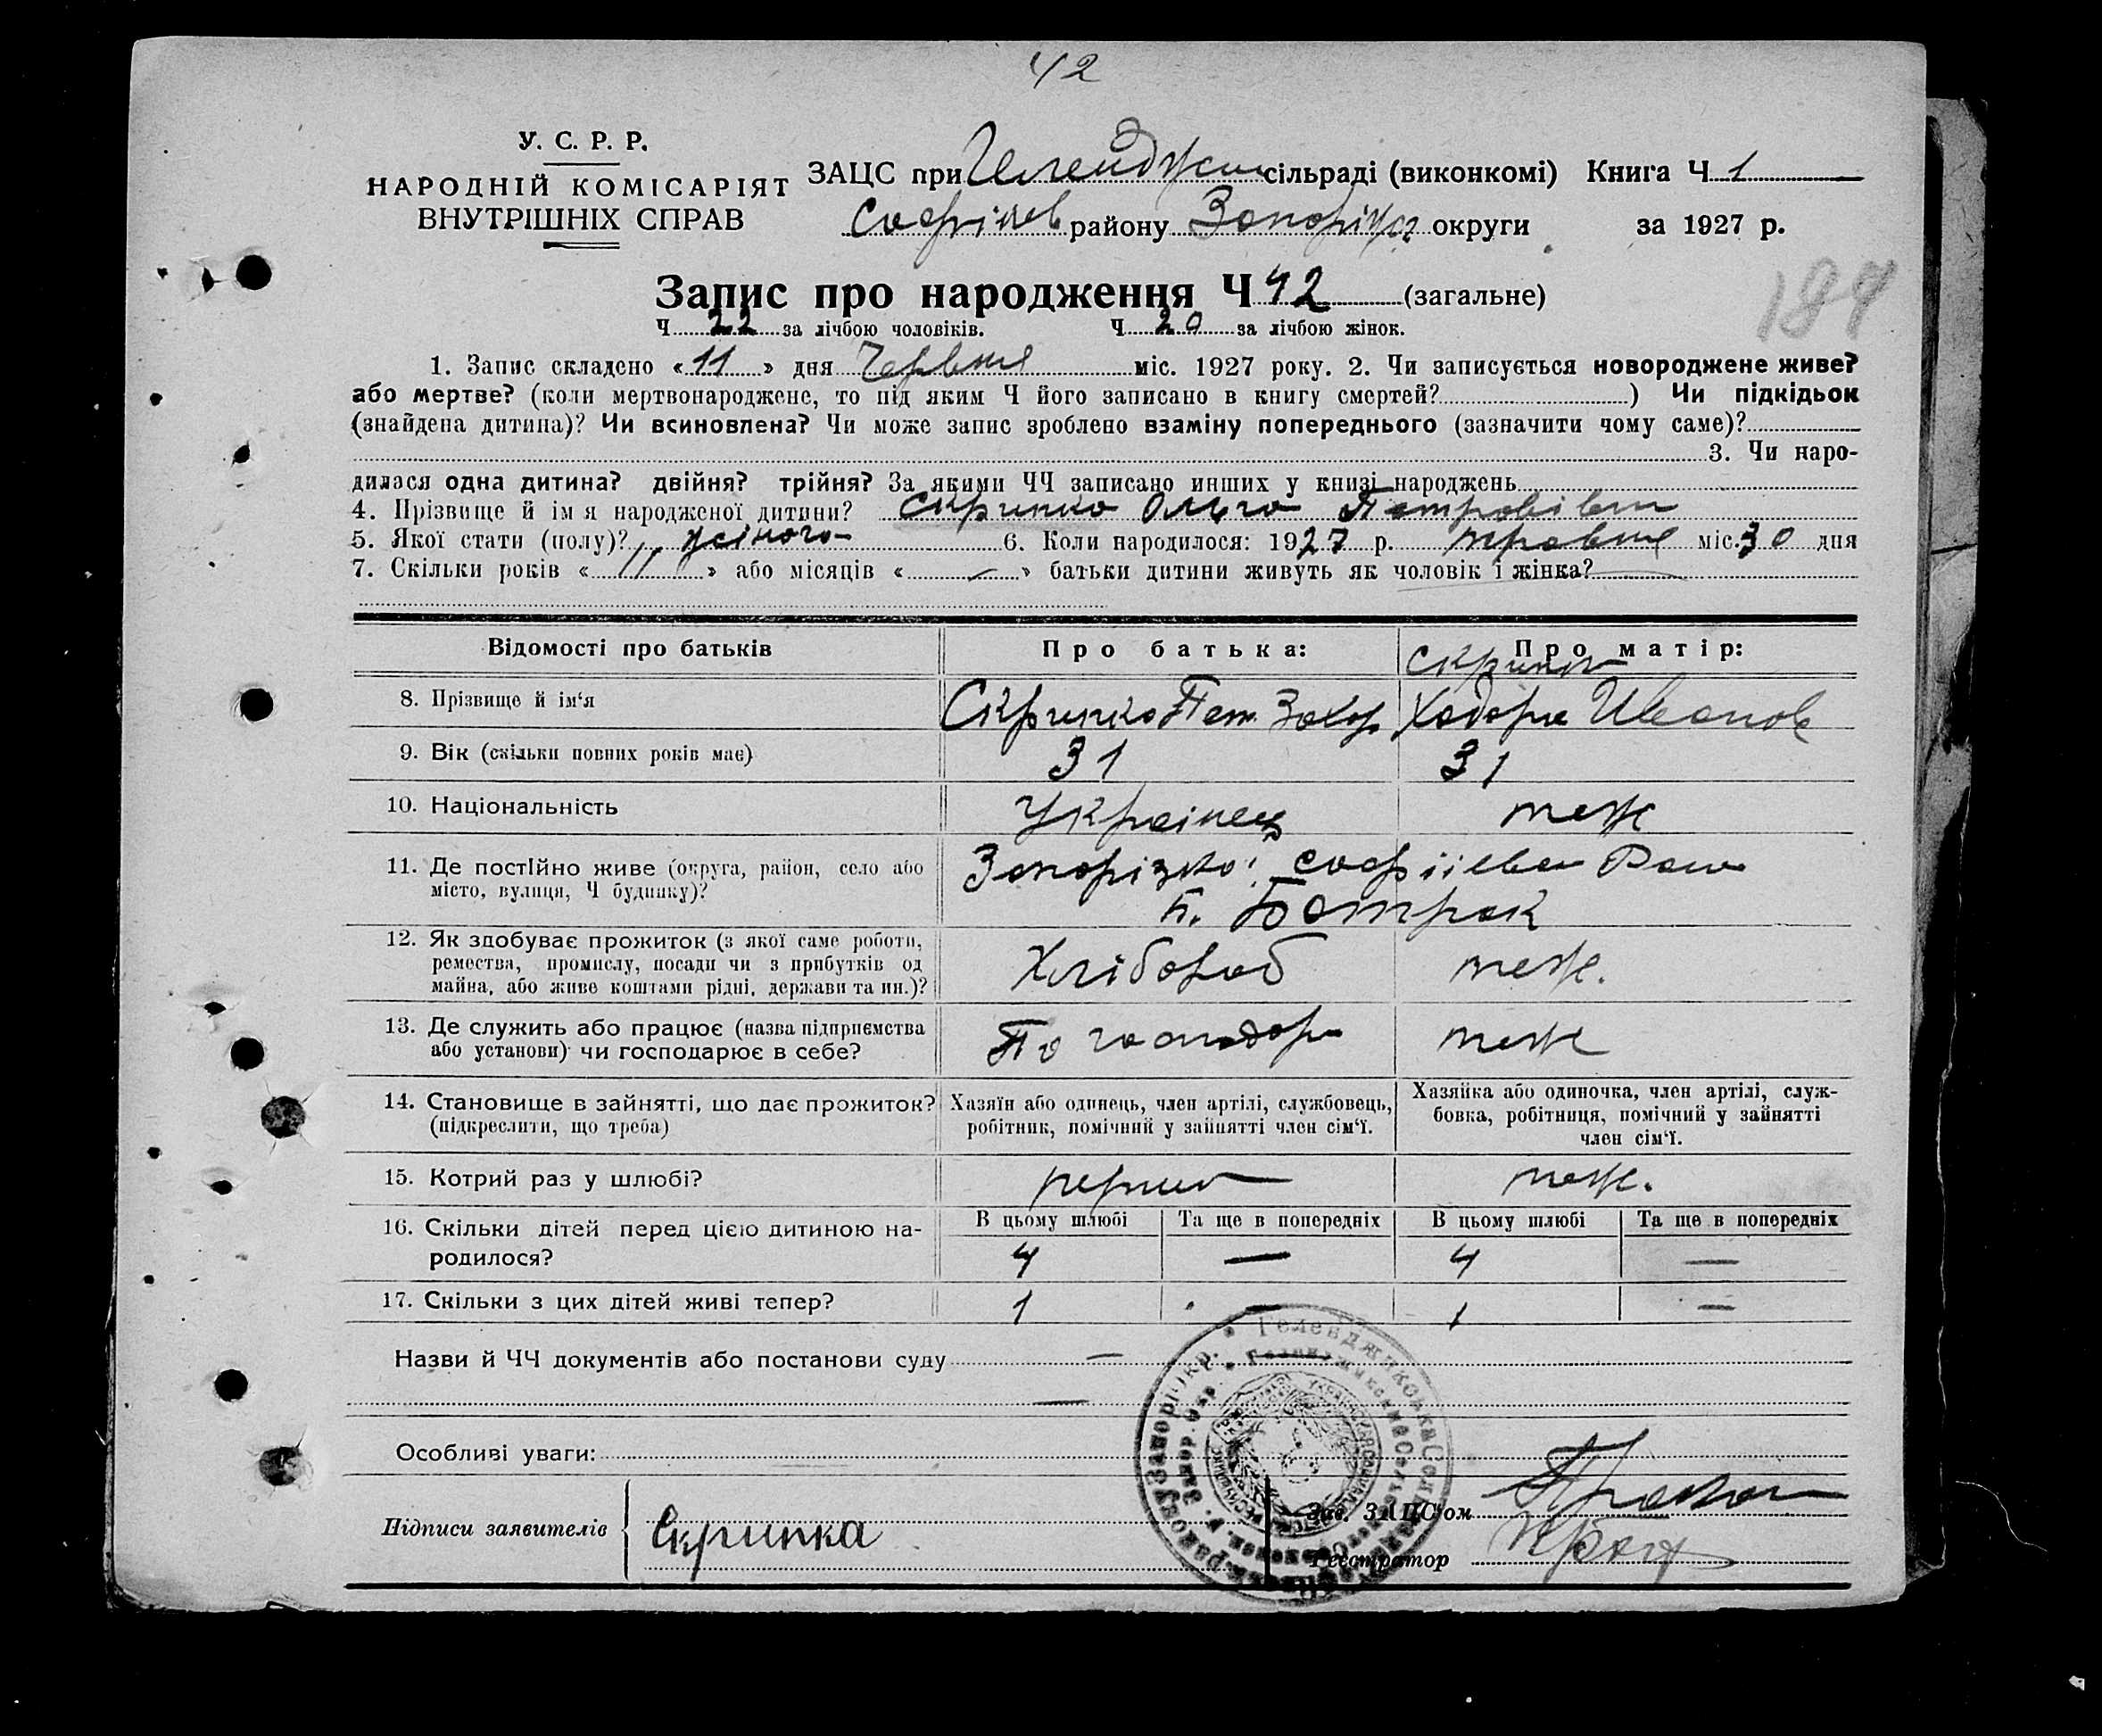 42
У. С. Р. Р.
НАРОДНІЙ КОМІСАРІЯТ
ВНУТРІШНІХ СПРАВ
ЗАЦС при сільраді (виконкомі) Книга Ч 1
району округи за 1927 р.
Запис про народження Ч 42 (загальне)
Ч 22 за лічбою чоловіків. Ч 20 за лічбою жінок.
1. Запис складено « 11 » дня Червня міс. 1927 року. 2. Чи записується новороджене живе?
або мертве? (коли мертвонароджене, то під яким Ч його записано в книгу смертей? ) Чи підкідьок
(знайдена дитина)? Чи всиновлена? Чи може запис зроблено взаміну попереднього (зазначити чому саме)?
3. Чи наро-
дилася одна дитина? двійня? трійня? За якими ЧЧ записано инших у книзі народжень
4. Прізвище й ім я народженої дитини? Скрипко Ольга
5. Якої стати (полу)? жіного 6. Коли народилося: 1927 р. травня міс. 30 дня
7. Скільки років « 11 » або місяців « — » батьки дитини живуть як чоловік і жінка?
Відомості про батьків
Про батька:
Про матір:
8. Прізвище й ім'я
Скрипко Пет. Захар
Скрипко
Ходора Иванов
9. Вік (скільки повних років має)
31
31
10. Національність
Українец
теж
11. Де постійно живе (округа, район, село або
місто, вулиця, Ч будинку)?
Запорізко
п. Батрак
12. Як здобуває прожиток (з якої саме роботи,
ремества, промислу, посади чи з прибутків од
майна, або живе коштами рідні, держави та ин.)?
Хлібороб
теж.
13. Де служить або працює (назва підприємства
або установи) чи господарює в себе?
По господар
теж
14. Становище в зайнятті, що дає прожиток?
(підкреслити, що треба)
Хазяїн або одинець, член артілі, службовець,
робітник, помічний у зайнятті член сім'ї.
Хазяйка або одиночка, член артілі, служ-
бовка, робітниця, помічний у зайнятті
член сім'ї.
15. Котрий раз у шлюбі?
теж.
16. Скільки дітей перед цією дитиною на-
родилося?
В цьому шлюбі Та ще в попередніх В цьому шлюбі Та ще в попередніх
4 — 4 —
17. Скільки з цих дітей живі тепер?
1 — 1 —
Назви й ЧЧ документів або постанови суду —
—
Особливі уваги:
Підписи заявителів
Скрипка
Зав. ЗАЦС'ом
Реєстратор